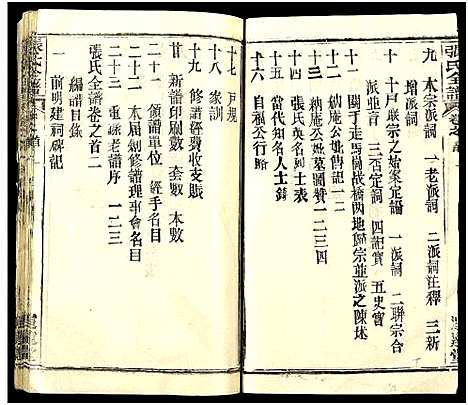 張氏全譜
九　本宗派詞　一老派詞　二派詞注釋　三新
增派詞
十　十戶聯宗之始案定論　一派詞　二聯宗合
派並言　三否定詞　四記實　五史實
十一　關于走馬樹战橋两地聯宗並派之陳述
十二　納庵公妣傳記一二
十三　納庵公妣墓圖贊一二三四
十四　烈士英名录
十五　當代知名人士錄
十六　自福公行略
十七　戶規
十八　家訓
十九　修譜經費收支賬
廿　新譜印刷數　套數　本數
二十一　領譜單位　經手名目
二十二　本届続修譜理事會名目
二十三　重錄老譜序　一二三
張氏全譜卷之首二
編譜目錄
一　前明建祠碑記
張氏全譜